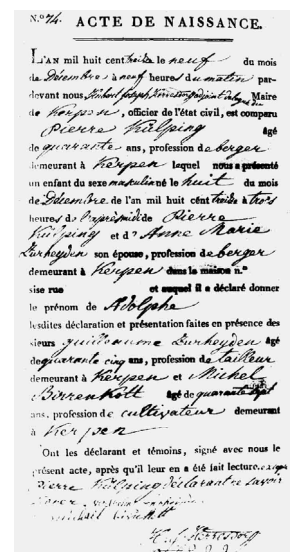 N.º 74. ACTE DE NAISSANCE.
L'AN mil huit cent treize le neuf du mois
de Décembre à neuf heures du matin par-
devant nous Michael Joseph adjoint Maire
de Kerpen, officier de l'état civil, est comparu
Pierre Külping âgé
de quarante ans, profession de berger
demeurant à Kerpen lequel nous a présenté
un enfant du sexe masculin né le huit du mois
de Décembre de l'an mil huit cent treize à trois
heures de l'après midi de Pierre
Külping et d' Anne Marie
Zurheyden son épouse, profession de berger
demeurant à Kerpen dans la maison n.º
sise rue et auquel il a déclaré donner
le prénom de Adolphe
lesdites déclaration et présentation faites en présence des
sieurs guillaume Zurheyden âgé
de quarante cinq ans, profession de tailleur
demeurant à Kerpen et Michel
Birrenkott âgé de quarante sept
ans, profession de cultivateur demeurant
à Kerpen
Ont les déclarant et témoins, signé avec nous le
présent acte, après qu'il leur en a été fait lecture
Pierre Külping déclarant ne savoir